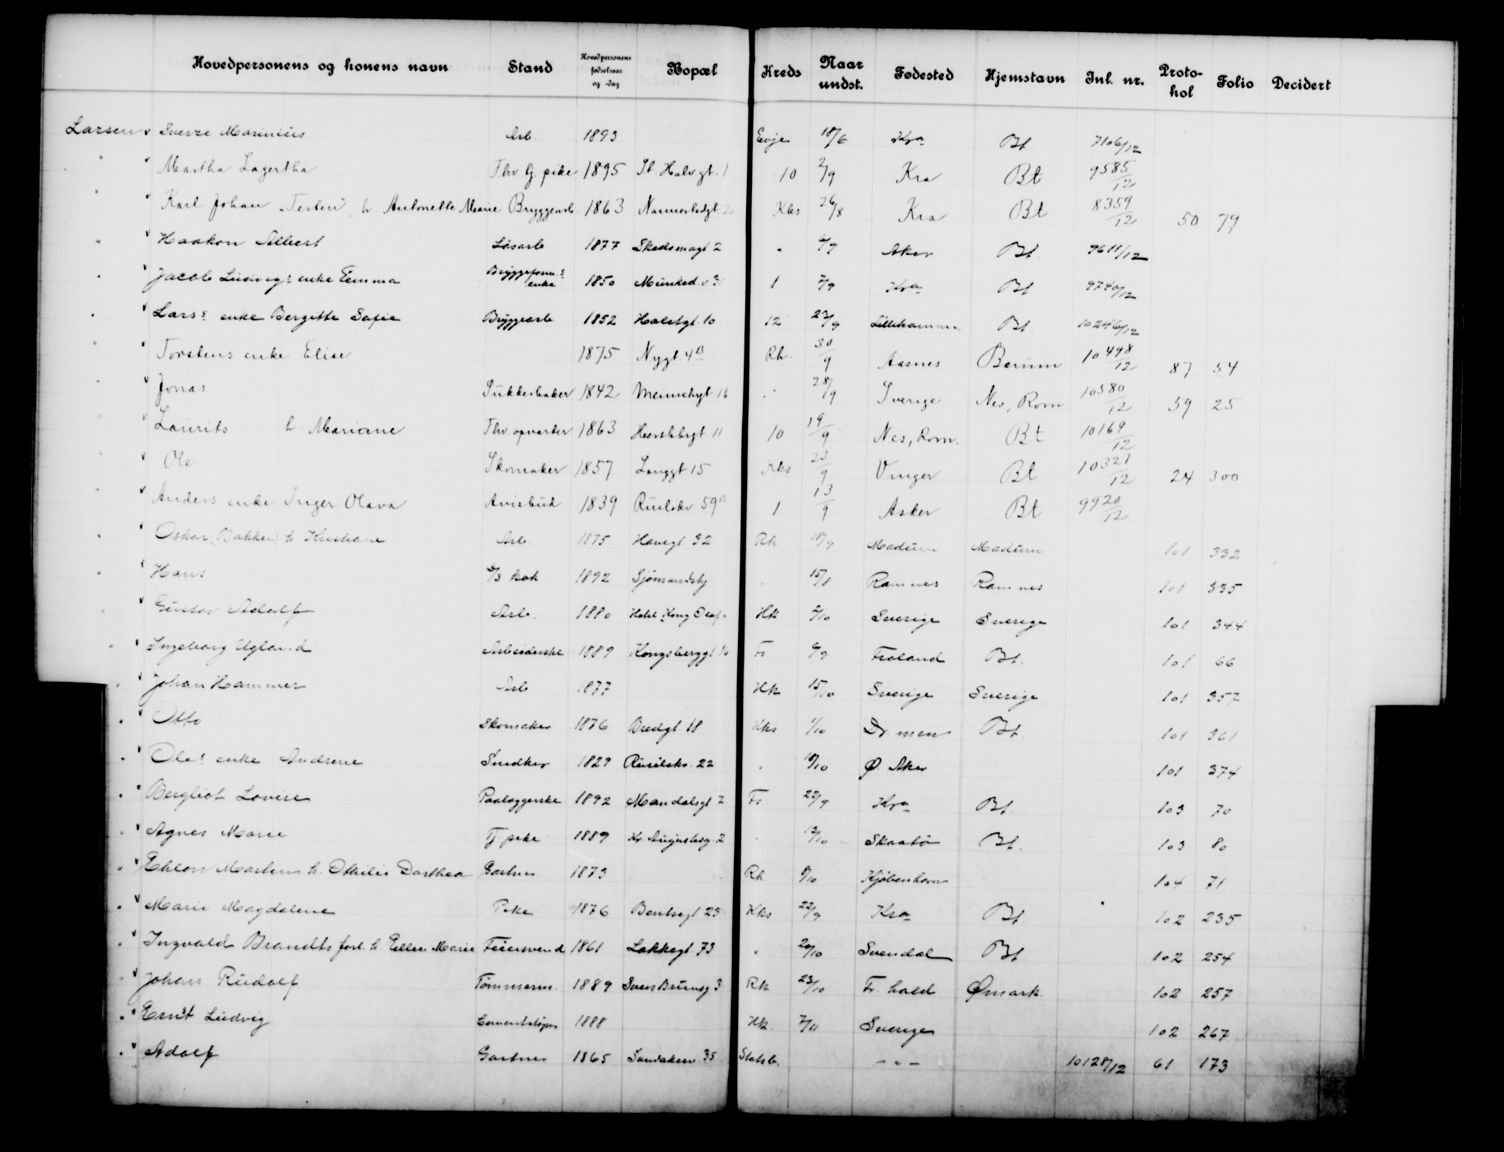 Hovedpersonens og konens navn Stand Hovedpersonens fødselsaar og -dag Bopæl Kreds Naar undst. Fødested Hjemstavn Inl. nr. Protokol Folio Decidert
Larsen Sverre Marinius Arb. 1893 Evje 18/6 Kra Bt 7106/12
" Martha Lagertha Thv tj. pike 1895 Th. Halv.gt. 1 10 2/9 Kra Bt 9585/12
" Karl Johan h. Antonette Marie Bryggearb. 1863 Nannestadgt. 2 Kks 26/8 Kra Bt 8359/12 50 79
" Haakon Albert Løsarb 1877 Skedsmogt 2 " Aker Bt 9611/12
" Jacob Ludvigs enke Emma enke 1850 1 7/9 Kra Bt 9740/12
" Lars's enke Bergitte Sofie Bryggearb 1852 Holstgt 10 12 Lillehammer Bt 10246/12
Torstens enke Elise 1875 Nygt 4B Rh. 30/9 Aasnes Bærum 10498/12 87 54
" Jonas Sukkerbaker 1842 " 28/9 Sverige Nes, Rom. 10580/12 59 25
" Laurits h. Mariane Thv. opvarter 1863 Herslebsgt 11 10 19/9 Nes, Rom. Bt 10169/12
" Ole Skomaker 1857 Langgt 15 Kks 23/9 Vinger Bt 10321/12 24 300
" Anders enke Inger Olava Avisbud 1839 1 13/9 Asker Bt 9920/12
" Oskar (Bakken) h Kristiane Arb 1875 Havegt 32 Rh Modum Modum 101 332
" Hans kok 1892 " 15/8 Ramnes Ramnes 101 335
" Gustav Adolf Arb. 1880 Hotel Kong Olaf Hk Sverige Sverige 101 344
" Ingeborg Ugland Arbeiderske 1889 Kongsberggt Fr. Froland Bt. 101 66
" Johan Hammer Arb 1877 Hk 15/10 Sverige Sverige 101 357
" Otto Skomaker 1876 Bredgt 18 Kks 1/10 Dr.men Bt. 101 361
" Oles enke Andrine Snedker 1829 Ruseløkv. 22 " Ø. Aker 101 374
" Bergliot Lovise Paaleggerske 1892 Mandalsgt 7 Fr. 22/9 Kra Bt. 103 70
" Agnes Marie Tj. pike 1889 Kr. Augustsg. 2 " Skaatø Bt. 103 80
" Marten h. Othilie Dorthea Gartner 1873 Rh. Kjøbenhavn 104 71
" Marie Magdalene Pike 1876 Bentsegt 23 Kks 22/9 Kra Bt 102 235
" Ingvald Brandts h Ellen Marie Feiersvend 1861 Lakkegt 73 " Svendal Bt 102 254
" Johan Rudolf Tømmerm. 1889 Sven Brunsg 3 Rh 23/10 Fr. hald Ømark. 102 257
" Ernst Ludvig 1888 Hk. 7/11 Sverige 102 267
" Adolf Gartner 1865 Sandakerv. 35 Statsb. — " — 10128/12 61 173